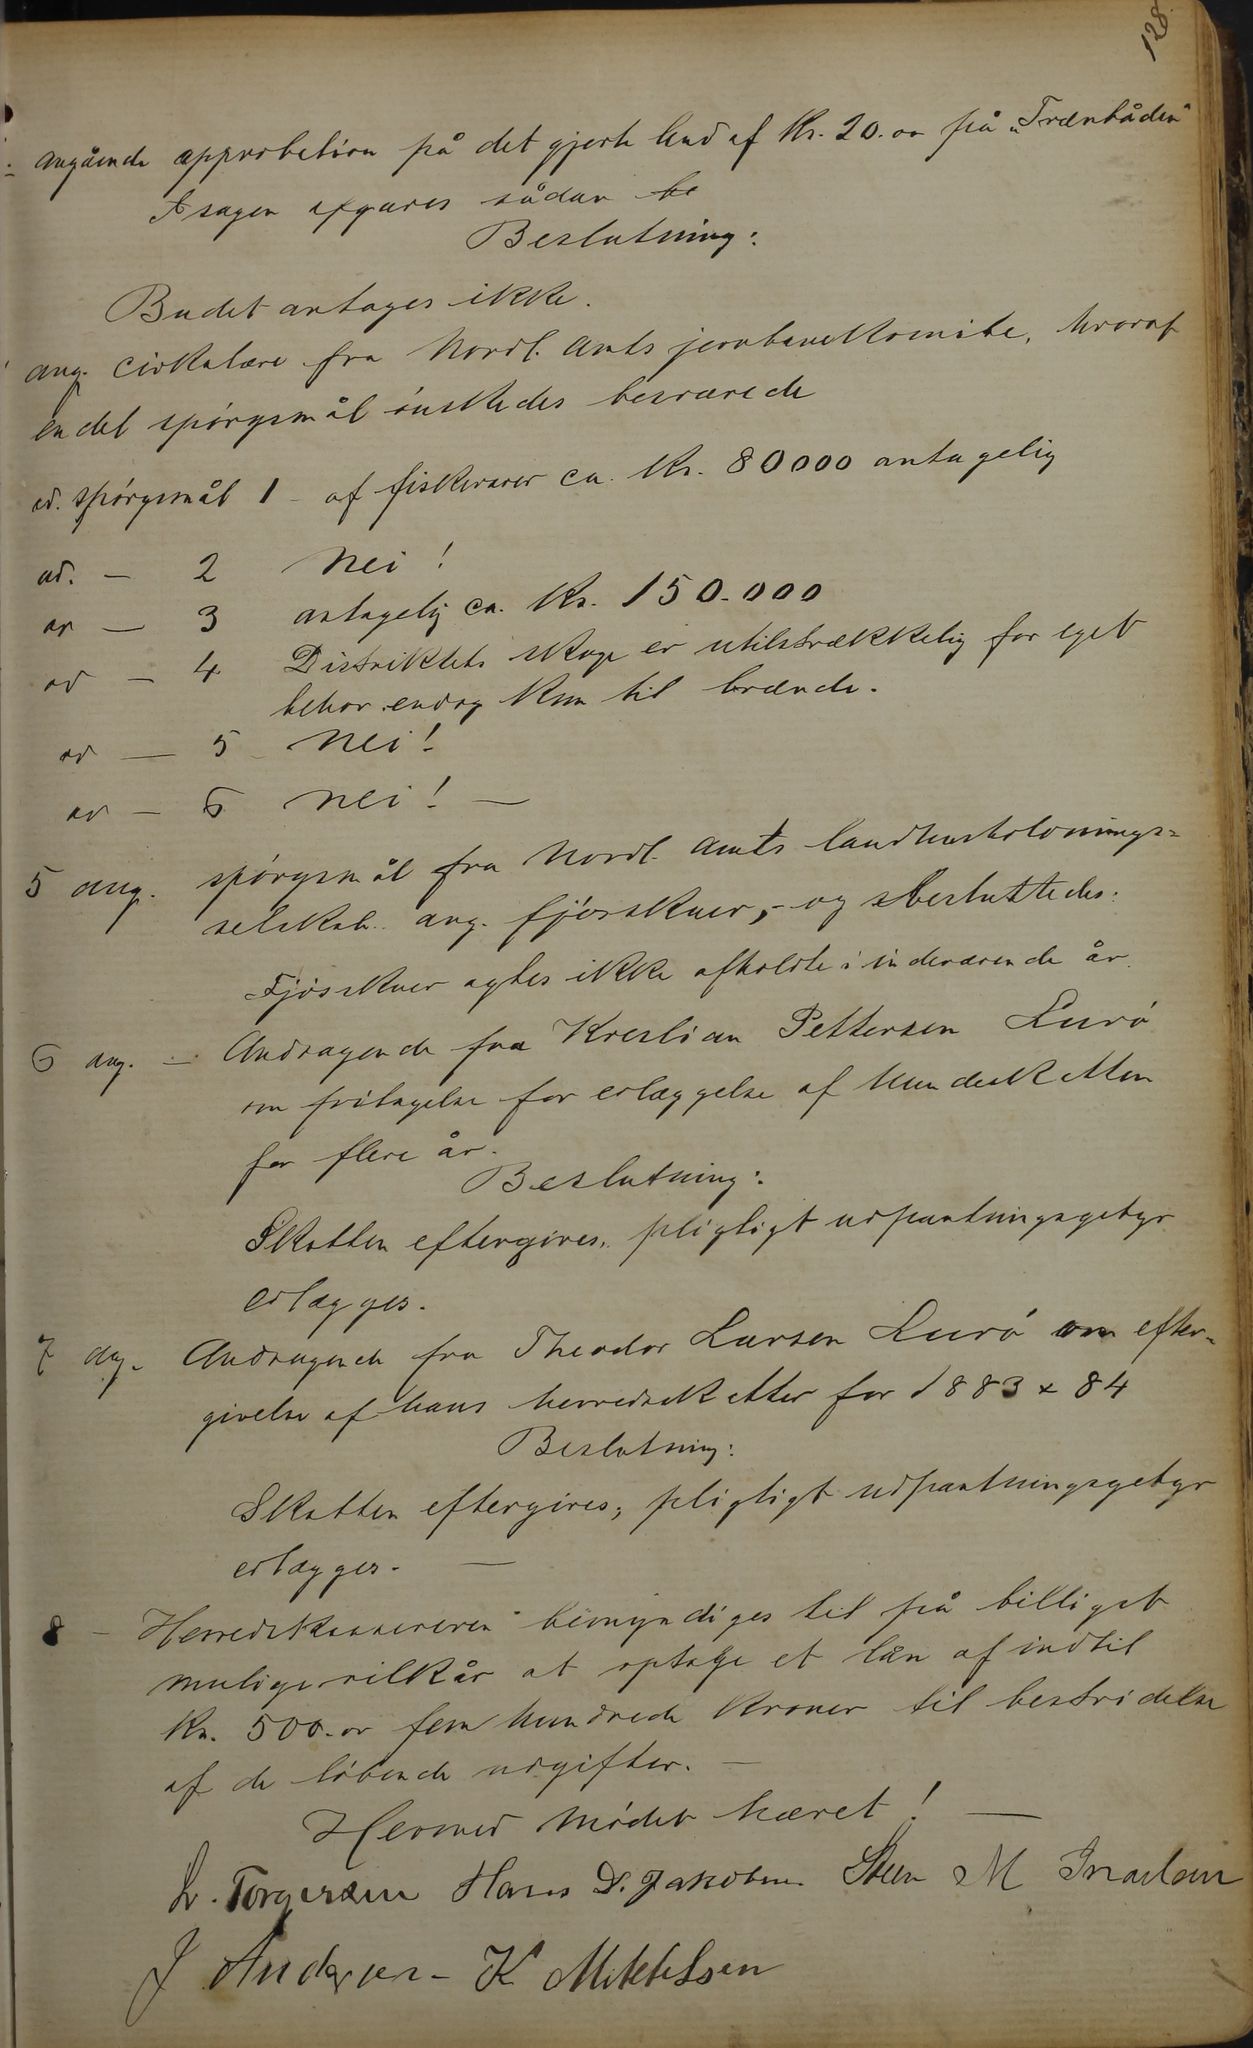 128.
angående approbation på det gjorte bud af Kr. 20.00 på „Trænbåden"
I sagen afgaves sådan be
Beslutning:
Budet antages ikke.
ang. cirkulære fra Nordl. Amts jernbanekomite, hvoraf
endel spörgsmål önskedes besvarede
ad. spörgsmål 1 - af fiskevarer ca. Kr. 80000 antagelig
ad. - 2 Nei!
ad - 3 antagelig ca. Kr. 150.000
ad - 4 Distriktets skoge er utilstrækkelig for eget
behov endog kun til brænde.
ad - 5 Nei!
ad - 6 Nei! -
5 ang. spörgsmål fra Nordl. Amts landhusholdnings=
selskab ang. fjösskuer, - og besluttedes:
Fjösskuer agtes ikke afholdte i indeværende år.
6 ang. - Andragende fra Kristian Pettersen Lurö
om fritagelse for erlæggelse af hundeskatten
for flere år.
Beslutning:
Skatten eftergives, pligtigt udpantningsgebyr
erlægges.
7 ang. Andragende fra Theodor Larsen Lurö om efter-
givelse af hans herredsskatter for 1883 & 84
Beslutning:
Skatten eftergives; pligtigt udpantningsgebyr
erlægges. -
8 - Herredskassereren bemyndiges til på billigst
mulige vilkår at optage et lån af indtil
Kr. 500.00 fem hundrede kroner til bestridelse
af de löbende udgifter. -
Hermed mödet hævet! -
L. Torgersen Hans D. Jakobsen Steen M Israelsen
J Andersen - K Mikkelsen